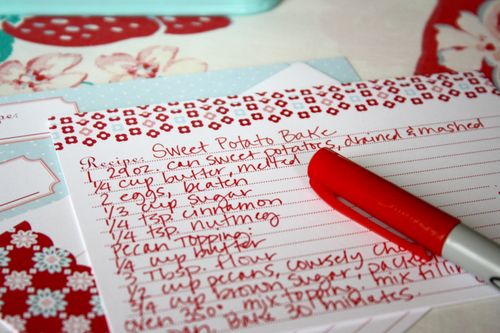 Recipe: Sweet Potato Bake
1 29oz. can sweet potatoes, drained & mashed
1/4 cup butter, melted
2 eggs, beaten
1/3 cup sugar
1/4 tsp cinnamon
1/4 tsp. nutmeg
Pecan Topping:
1/4 cup butter
Tbsp. flour
cup pecans, coursely
cup brown sugar, packed
oven 350°. mix topping. mix
Bake 30 minutes.